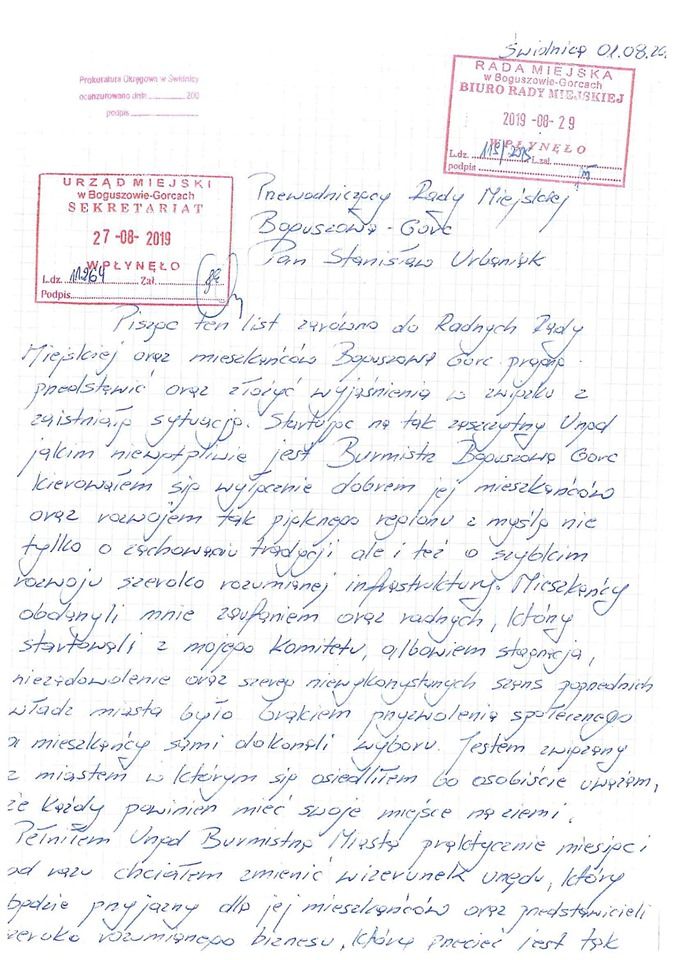 Świdnica 01.08.20
Prokuratura Okręgowa w Świdnicy
ocenzurowano dnia 200
podpis
RADA MIEJSKA
w Boguszowie-Gorcach
BIURO RADY MIEJSKIEJ
2019 -08- 29
WPŁYNĘŁO
L.dz. Zał.
podpis
URZĄD MIEJSKI
w Boguszowie-Gorcach
SEKRETARIAT
27 -08- 2019
WPŁYNĘŁO
L.dz. 11264 Zał.
Podpis
Przewodniczący Rady Miejskiej
Boguszowa - Gorc
Pan Stanisław Urbaniak
Pisząc ten list zarówno do Radnych Rady
Miejskiej oraz mieszkańców Boguszowa Gorc pragnę
przedstawić oraz złożyć wyjaśnienia w związku z
zaistniałą sytuacją. Startując na tak zaszczytny Urząd
jakim niewątpliwie jest Burmistrz Boguszowa Gorc
kierowałem się wyłącznie dobrem jej mieszkańców
oraz rozwojem tak pięknego regionu z myślą nie
tylko o zachowaniu tradycji ale i też o szybkim
rozwoju szeroko rozumianej infrastruktury. Mieszkańcy
obdarzyli mnie zaufaniem oraz radnych, który
startowali z mojego Komitetu, albowiem stagnacja,
niezadowolenie oraz szereg niewykorzystanych szans poprzednich
władz miasta było brakiem przyzwolenia społecznego
a mieszkańcy sami dokonali wyboru. Jestem związany
z miastem w którym się osiedliłem bo osobiście uważam,
że każdy powinien mieć swoje miejsce na ziemi.
Pełniłem Urząd Burmistrza Miasta praktycznie miesiąc i
od razu chciałem zmienić wizerunek urzędu, który
będzie przyjazny dla jej mieszkańców oraz przedstawicieli
szeroko rozumianego biznesu, która przecież jest tak